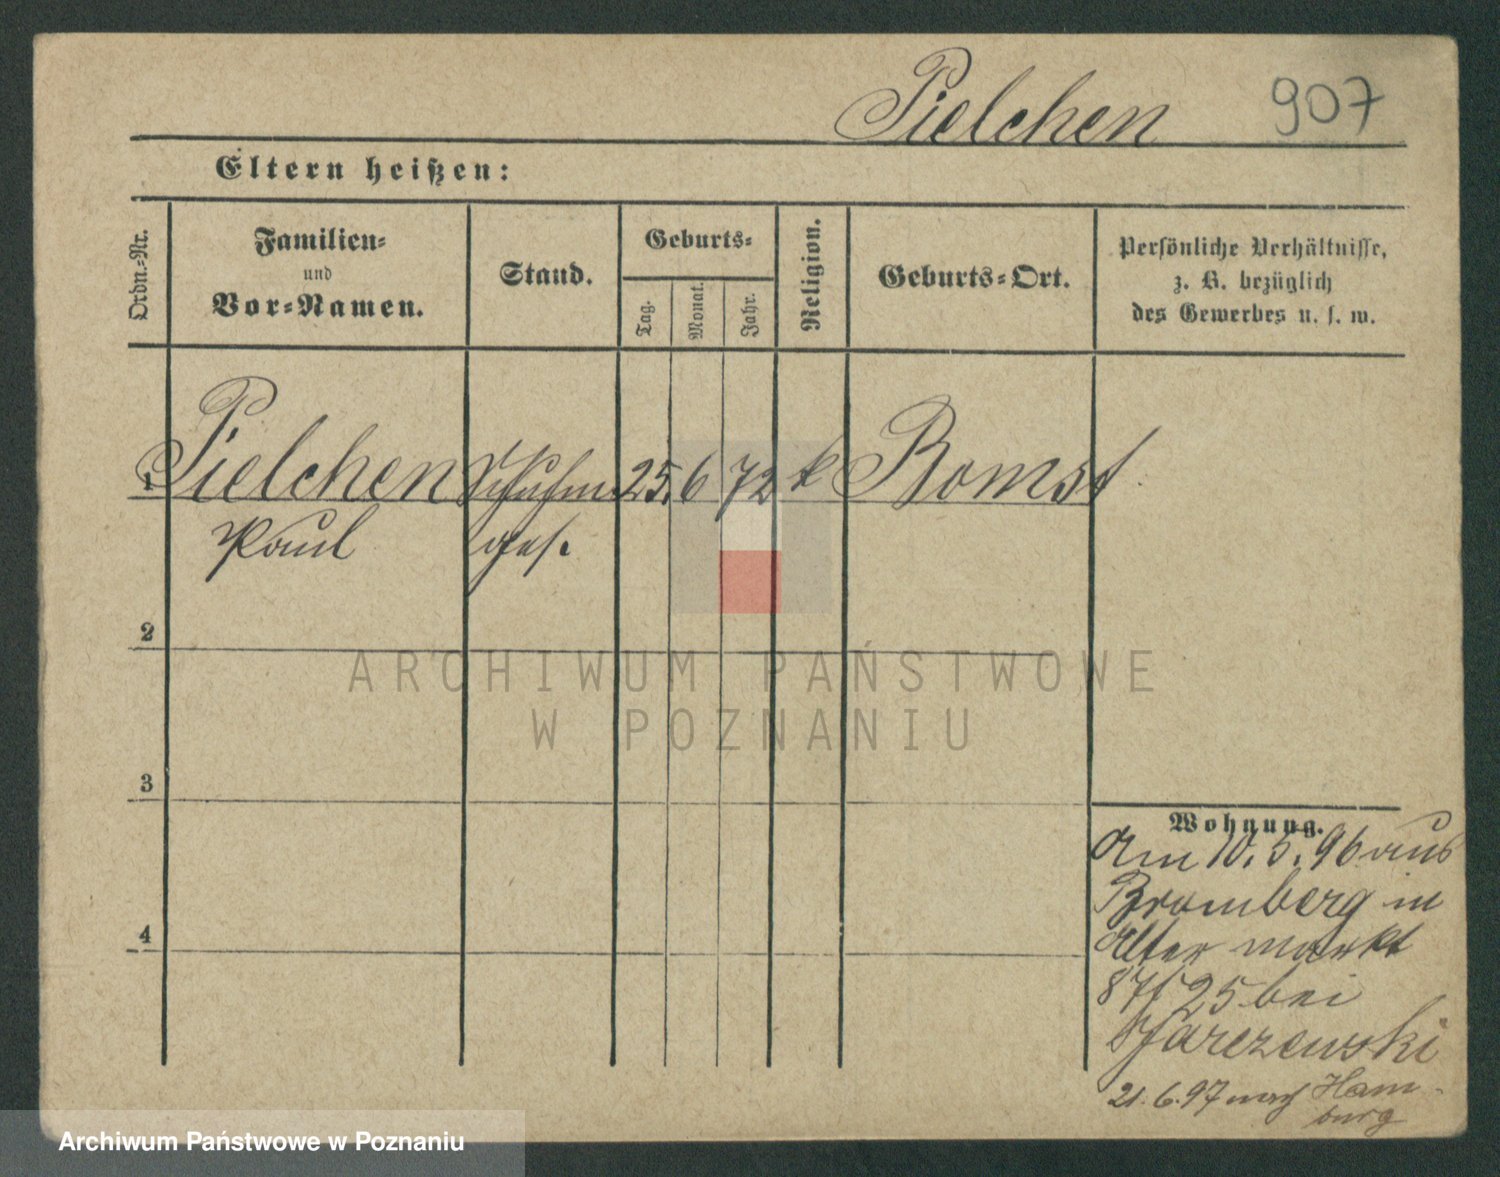 Pielchen 907
Eltern heißen:
Ordn.-Nr.
Familien-
und
Vor-Namen.
Stand.
Geburts-
Tag.
Monat.
Jahr.
Religion.
Geburts-Ort.
Persönliche Verhältnisse,
z. B. bezüglich
des Gewerbes u. s. w.
1 Pielchen Schuhm. 25. 6 72 k Bomst
Paul ges.
2
3
4
Wohnung.
Am 10. 5. 96 aus
Bromberg in
Alter markt
87/25 bei
21. 6. 97 nach Ham-
burg
ARCHIWUM PAŃSTWOWE
W POZNANIU
Archiwum Państwowe w Poznaniu